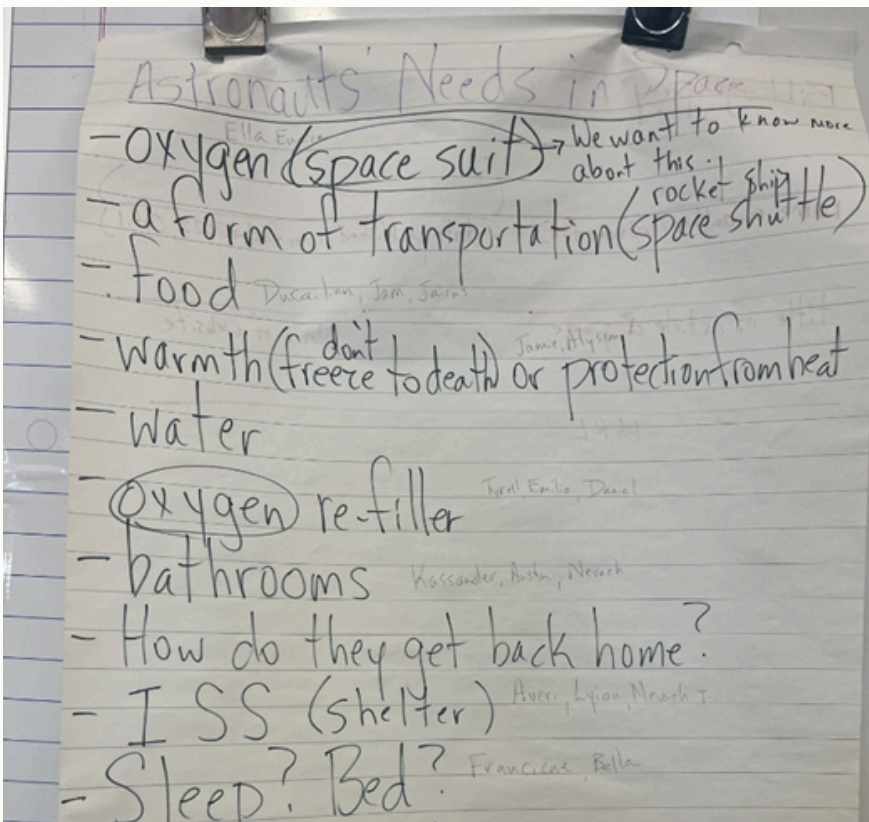 Astronauts' Needs in Space
Ella
- oxygen (space suit) → We want to know more
about this.
rocket ship
- a form of transportation (space shuttle)
- food Jam, Jairus
don't Jamie, Alyssa
- warmth (freeze to death) or protection from heat
- water
- oxygen re-filler Tyrell, Emilio, Daniel
- bathrooms Kassander, Austin, Nevaeh
- How do they get back home?
- ISS (shelter) Averi, Nevaeh T.
- Sleep? Bed? Franciene, Bella